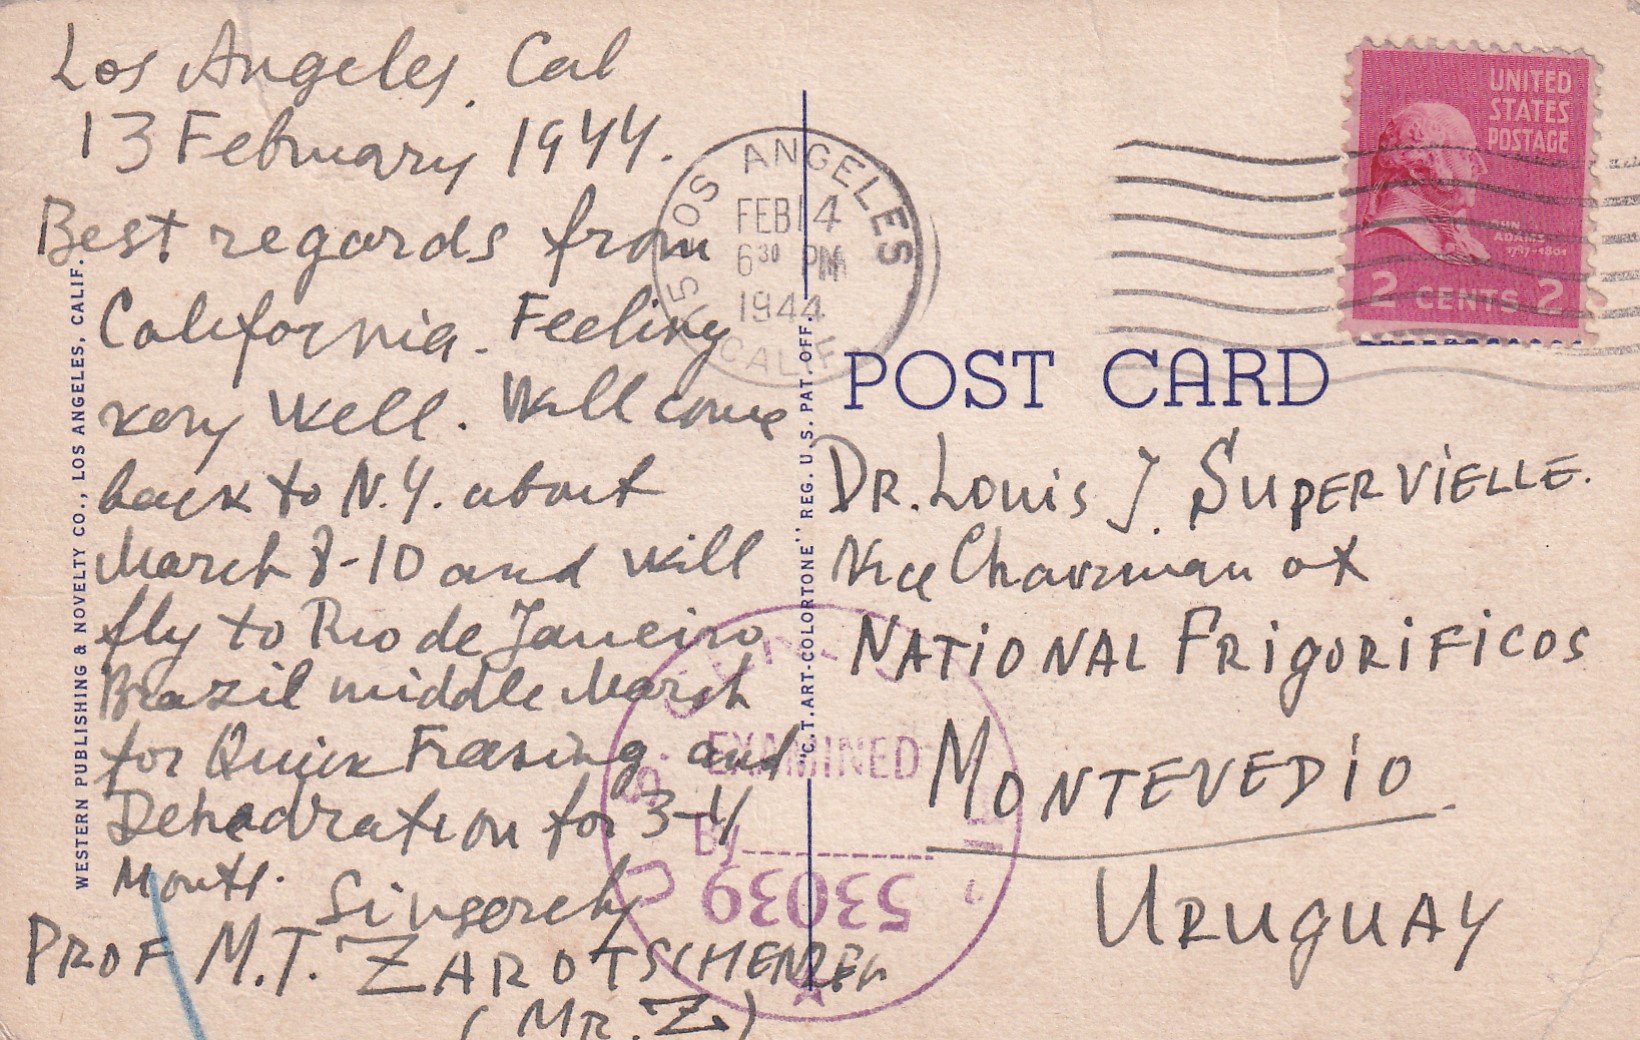 Los Angeles, Cal
13 February 1944.
Best regards from
California. Feeling
very well. Will come
back to N.Y. about
March 8-10 and will
fly to Rio de Janeiro
Brazil middle March
for Quick Freasing and
Dehadration for 3-4
Monts.
Sinserely
PROF M.T. ZAROTSCHENZEFF
(MR. Z)
WESTERN PUBLISHING & NOVELTY CO., LOS ANGELES, CALIF.
LOS ANGELES
FEB 14
6 30 PM
1944
CALIF.
"C.T. ART-COLORTONE" REG. U.S. PAT. OFF.
UNITED
STATES
POSTAGE
JOHN
ADAMS
1797-1801
2 CENTS 2
POST CARD
DR. Louis J. SUPERVIELLE.
Vice Chairman of
NATIONAL FRIGORIFICOS
MONTEVEDIO
URUGUAY
EXAMINED
By
53039